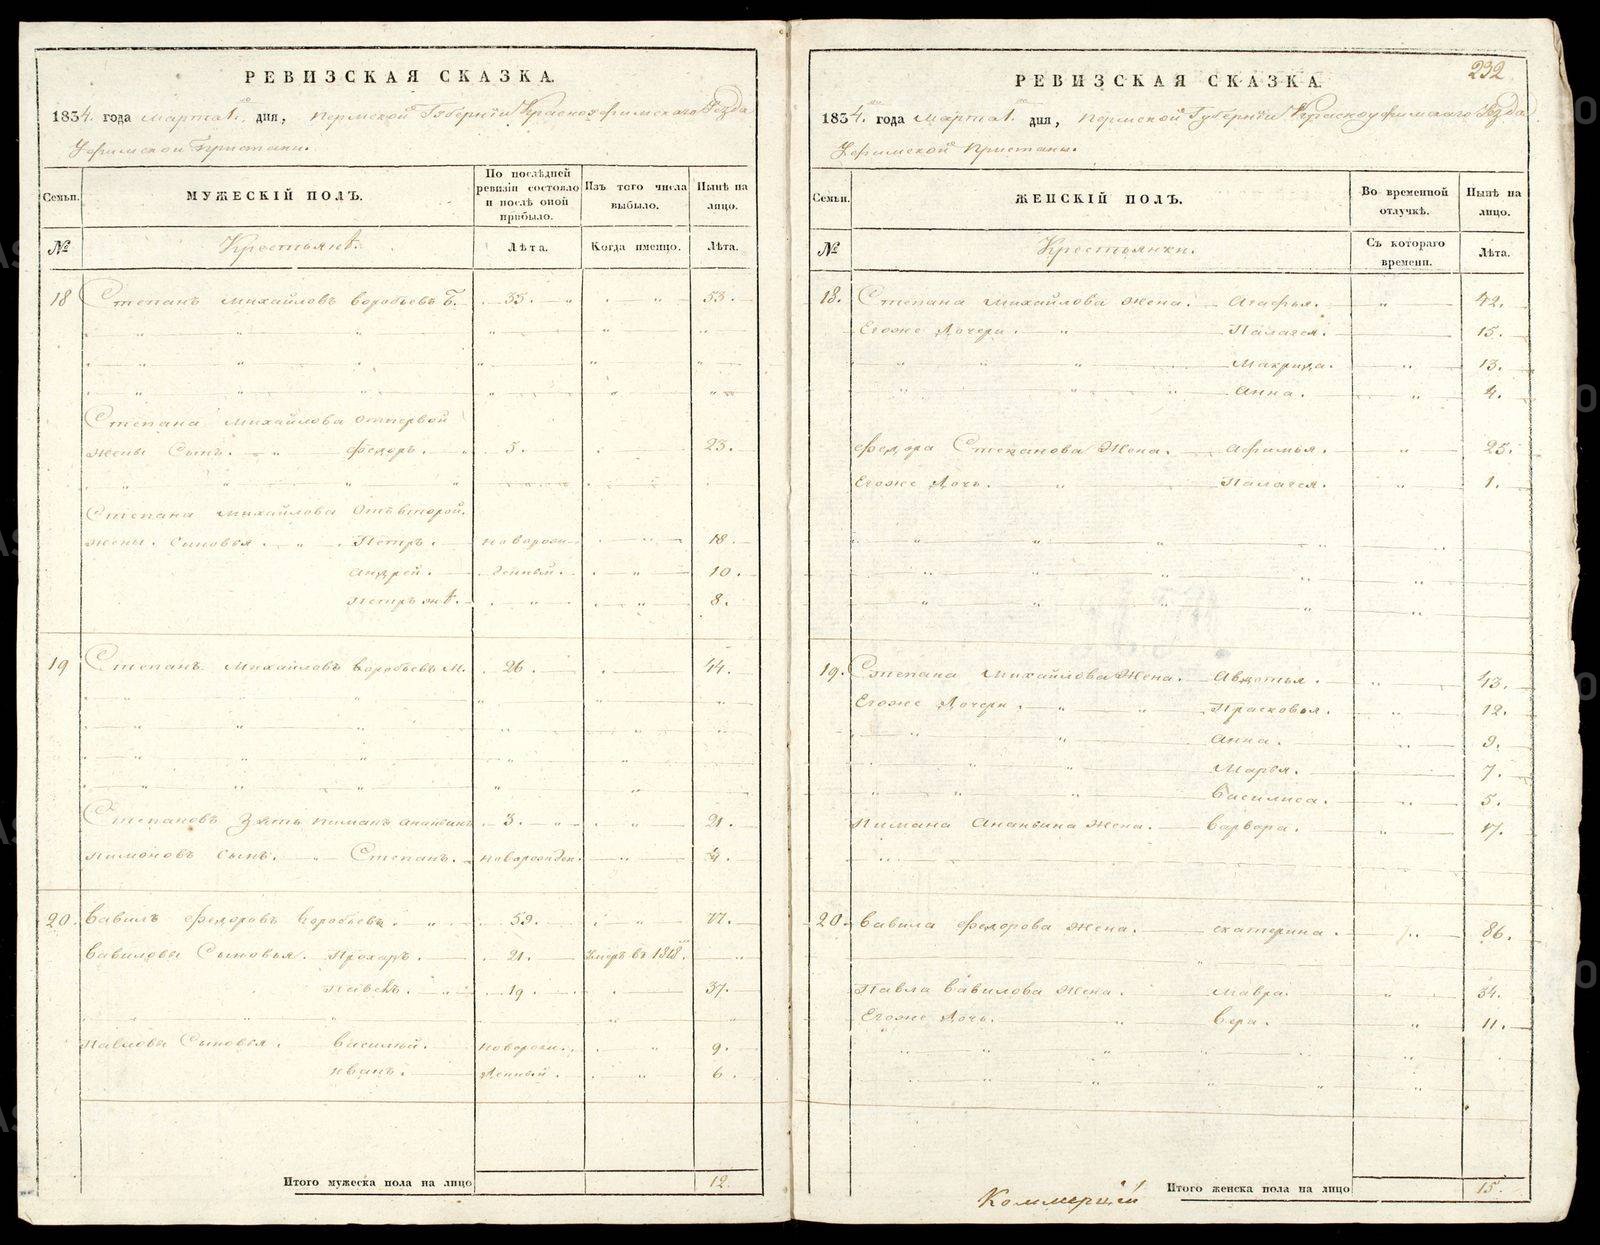 РЕВИЗСКАЯ СКАЗКА.
1834. года марта 1. дня, Пермской Губернïи Красноуфимскаго Уѣзда
Уфимской Пристани.
Семьи. МУЖЕСКІЙ ПОЛЪ. По послѣдней ревизіи состояло и послѣ оной прибыло. Изъ того числа выбыло. Нынѣ на лицо.
№ Крестьянѣ. Лѣта. Когда именно. Лѣта.
18 Степанъ Михайловъ Воробьевъ Б. 35. 53.
Степана Михайлова отпервой
жены Сынъ. Федоръ. 5. 23.
Степана Михайлова Отъ второй.
жены. Сыновья. Петръ. новорож 18.
Андрей. денный. 10.
Петръ жѣ. 8.
19 Степанъ Михайловъ Воробьевъ М. 26. 44.
Степановъ Зять Пиманъ Ананьинъ 3. 21.
Пимоновъ Сынъ. Степанъ. новорожден. ¼.
20. Вавилъ Федоровъ Воробьевъ. 59. 77.
Вавиловы Сыновья. Прохоръ. 21. Умеръ въ 1818.
Павелъ. 19. 37.
Павловы Сыновья. Василий. новорож. 9.
Иванъ. денный. 6.
Итого мужеска пола на лицо 12.
232
РЕВИЗСКАЯ СКАЗКА
1834. года марта 1. дня, Пермской Губернïи Красноуфимскаго Уѣзда
Уфимской Пристани.
Семьи. ЖЕНСКІЙ ПОЛЪ. Во временной отлучкѣ. Нынѣ на лицо.
№ Крестьянки. Съ котораго времени. Лѣта.
18. Степана Михайлова жена. Агафья. 42.
Егоже Дочери. Палагея. 15.
Макрида. 13.
Анна. 4.
Федора Степанова Жена. Афимья. 25.
Егоже Дочь. Палагея. 1.
19. Степана Михайлова Жена. Авдотья. 43.
Егоже Дочери. Прасковья. 12.
Анна. 9.
Марья. 7.
Василиса. 5.
Пимана Ананьина жена. Варвара. 17.
20. Вавила Федорова жена. Екатерина. 86.
Павла Вавилова жена. Мавра. 34.
Егоже Дочь. Вера. 11.
Итого женска пола на лицо 15.